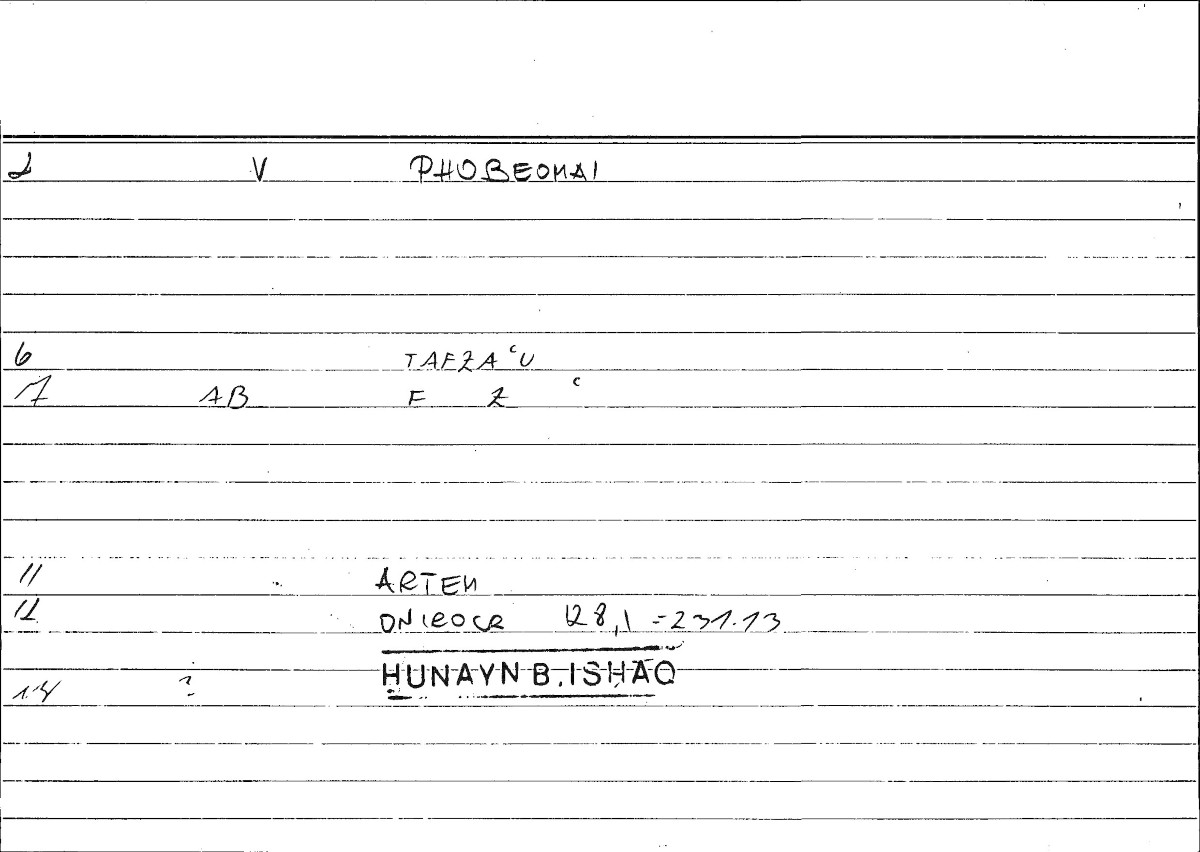 2 V PHOBEOMAI
6 TAFZA ʿU
7 AB F Z ʿ
11 ARTEM
12 ONIROCR 128,1 =231.13
HUNAYN B. ISHĀQ
14 ?